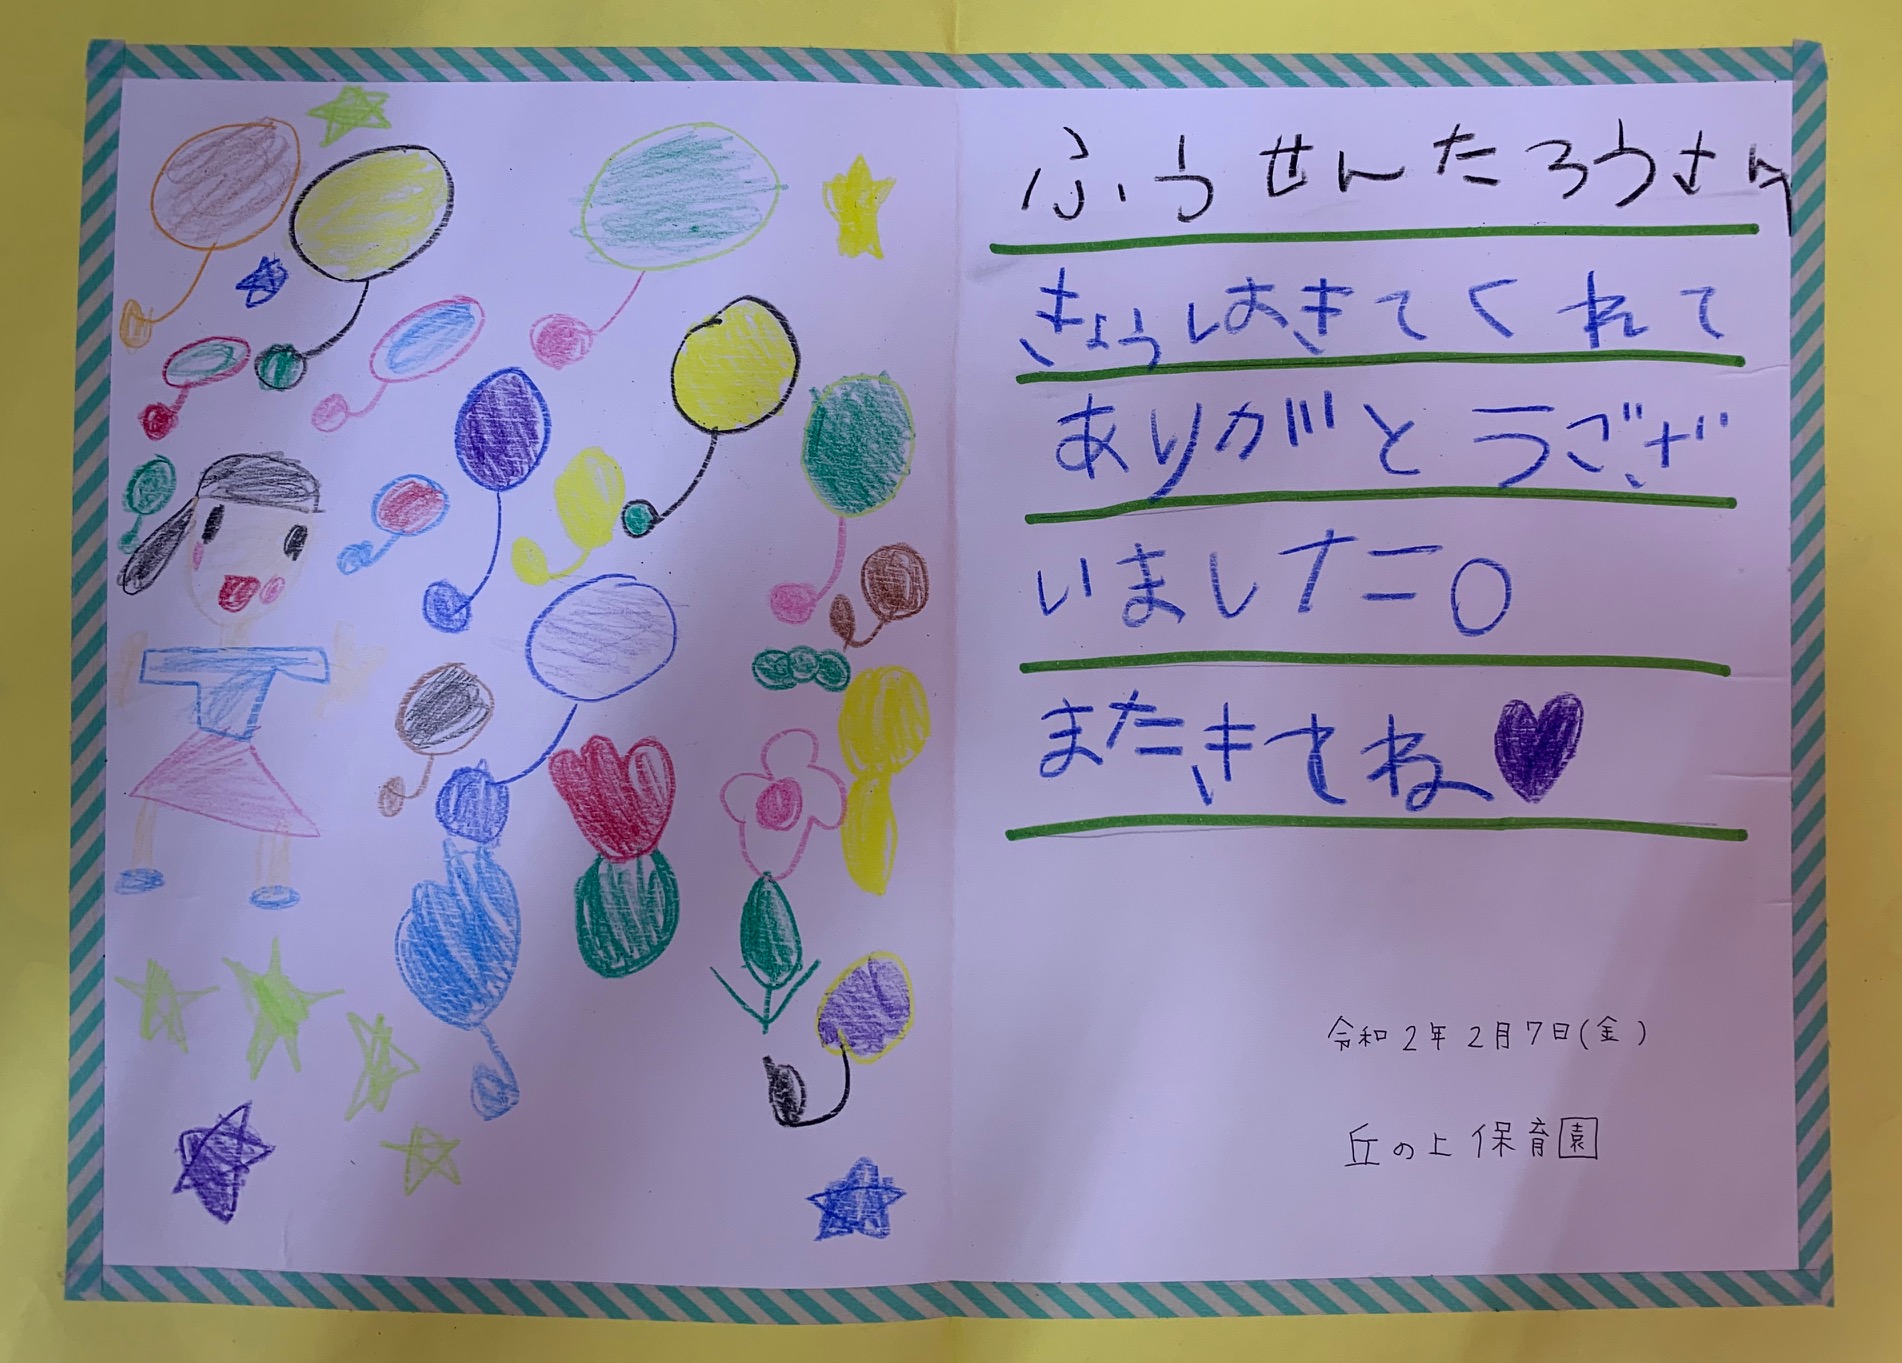 ふうせんたろうさん
きょうはきてくれて
ありがとうござ
いました。
またきてね
令和2年2月7日(金)
丘の上保育園